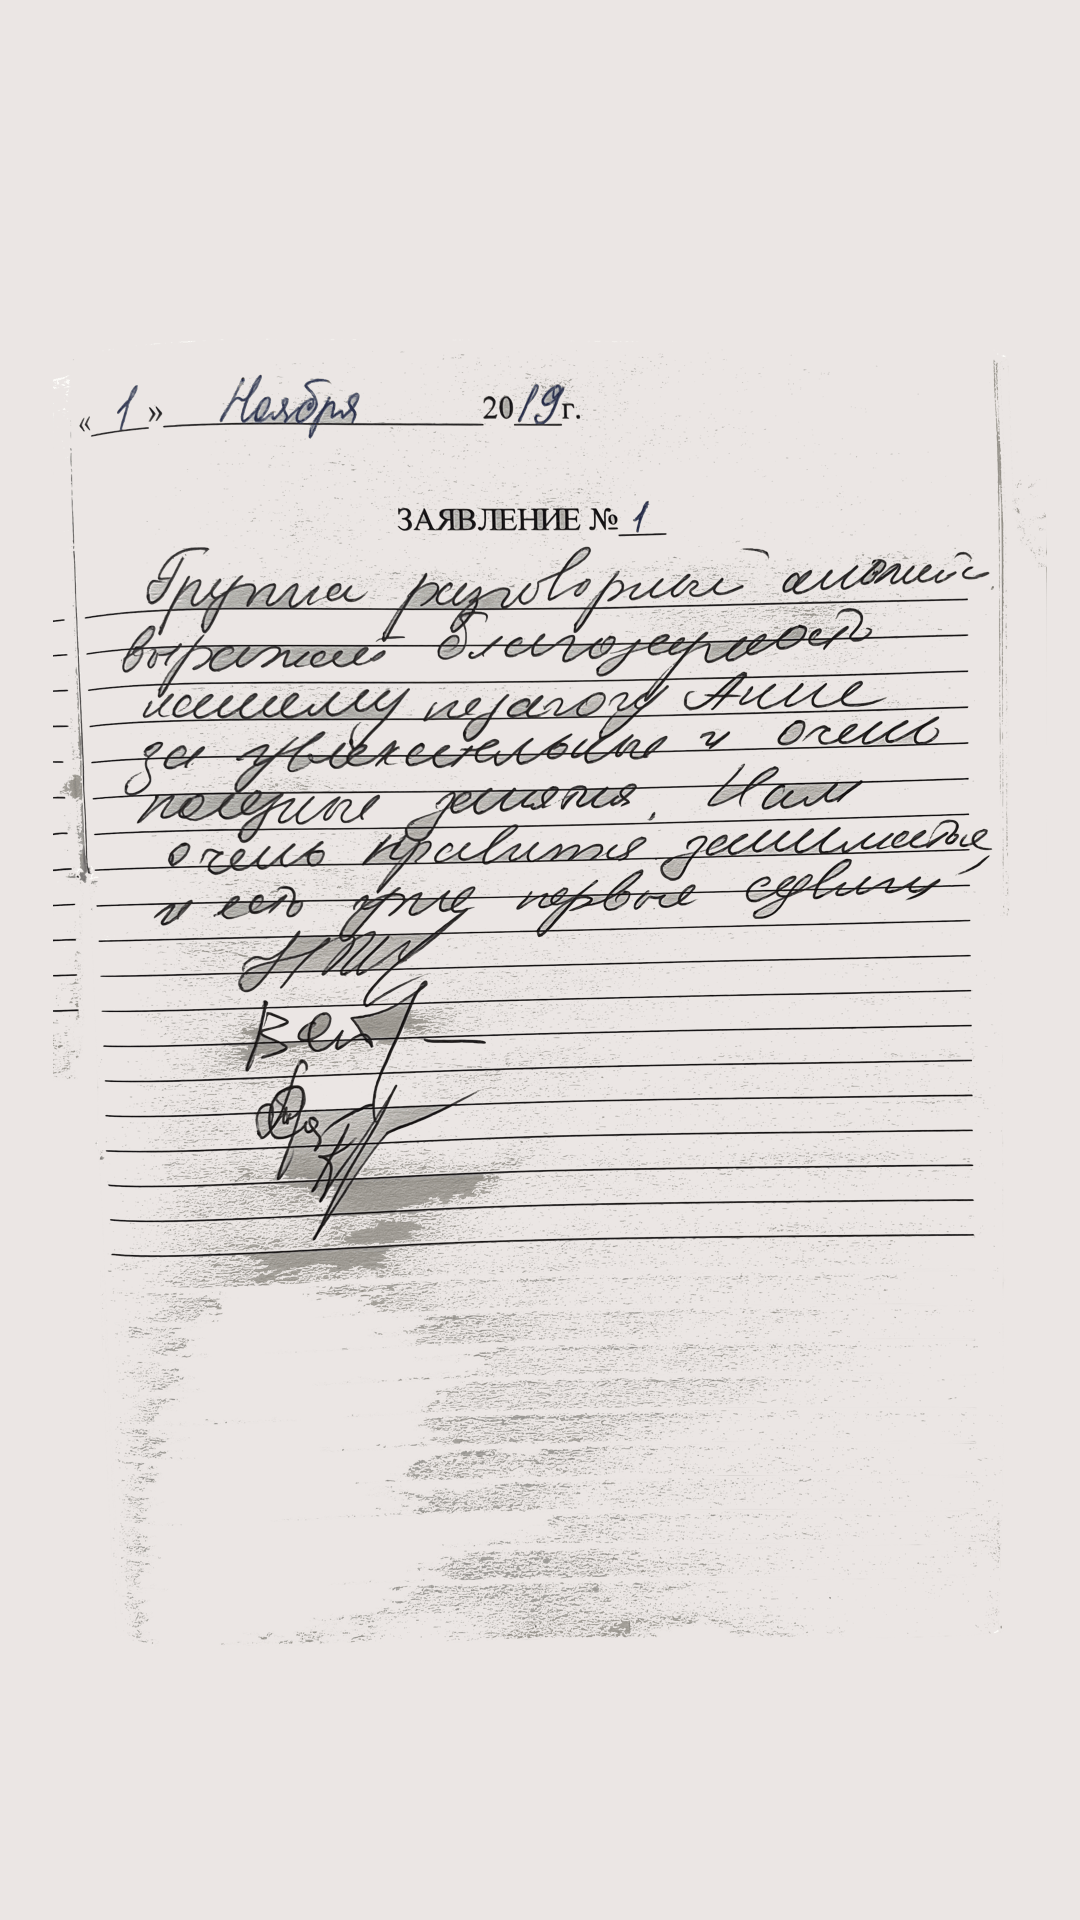 « 1 » Ноября 2019 г.
ЗАЯВЛЕНИЕ № 1
Группа разговорный английс
выражает благодарность
нашему педагогу Анне
за увлекательные и очень
полезные занятия. Нам
очень нравится заниматься
и есть уже первые сдвиги,